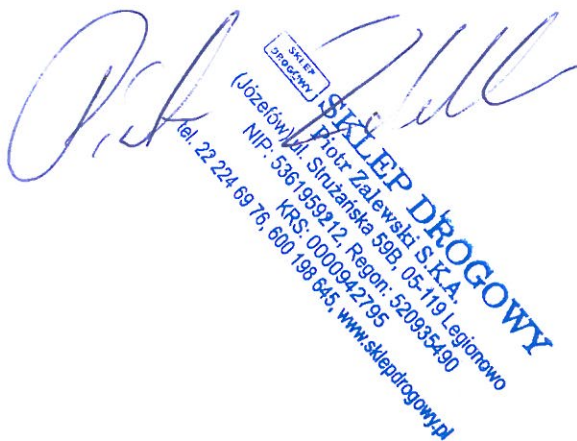 SKLEP
DROGOWY
SKLEP DROGOWY
Piotr Zalewski S.K.A.
(Józefów) ul. Strużańska 59B, 05-119 Legionowo
NIP: 5361959212, Regon: 520935490
KRS: 0000942795
tel. 22 224 69 76, 600 198 645, www.sklepdrogowy.pl